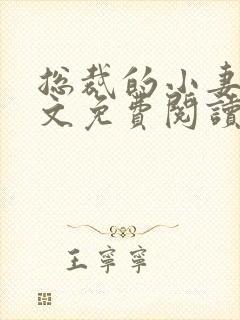 总裁的小妻
文免費閱讀
王寧寧